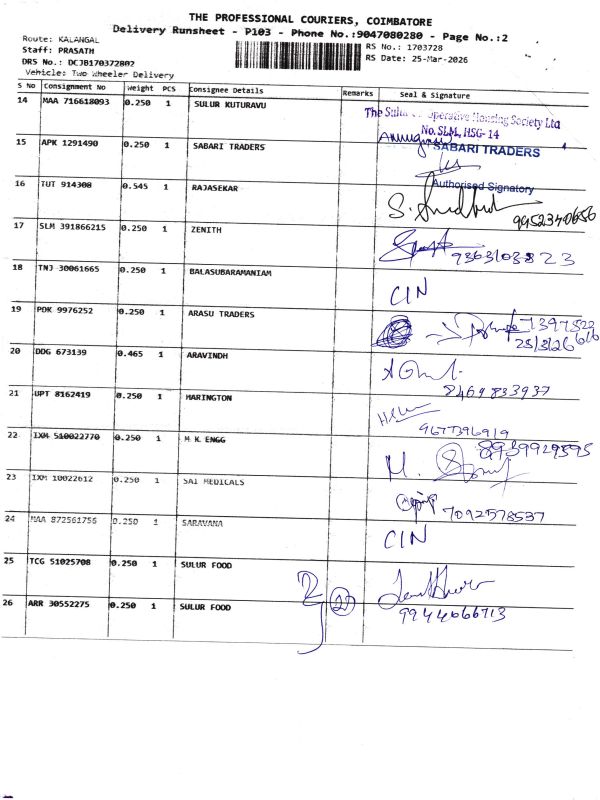 THE PROFESSIONAL COURIERS, COIMBATORE
Delivery Runsheet - P103 - Phone No.:9047080280 - Page No.:2
Route: KALANGAL
Staff: PRASATH
DRS No.: DCJB170372802
Vehicle: Two Wheeler Delivery
RS No.: 1703728
RS Date: 25-Mar-2026
S No Consignment No Weight PCS Consignee Details Remarks Seal & Signature
14 MAA 716618093 0.250 1 SULUR KUTURAVU
The Sulur Co-operative Housing Society Ltd
No. SLM, HSG- 14
15 APK 1291490 0.250 1 SABARI TRADERS
SABARI TRADERS
Authorised Signatory
16 TUT 914308 0.545 1 RAJASEKAR
9952340656
17 SLM 391866215 0.250 1 ZENITH
9363103823
18 TNJ 30061665 0.250 1 BALASUBARAMANIAM
CIN
19 PDK 9976252 0.250 1 ARASU TRADERS
25/3/26
20 DDG 673139 0.465 1 ARAVINDH
8469833937
21 UPT 8162419 0.250 1 HARINGTON
9677396919
22 IXM 510022770 0.250 1 M K ENGG
8939929595
23 IXM 10022612 0.250 1 SAI MEDICALS
7092578537
24 MAA 872561756 0.250 1 SARAVANA
CIN
25 TCG 51025708 0.250 1 SULUR FOOD
26 ARR 30552275 0.250 1 SULUR FOOD
9944066713